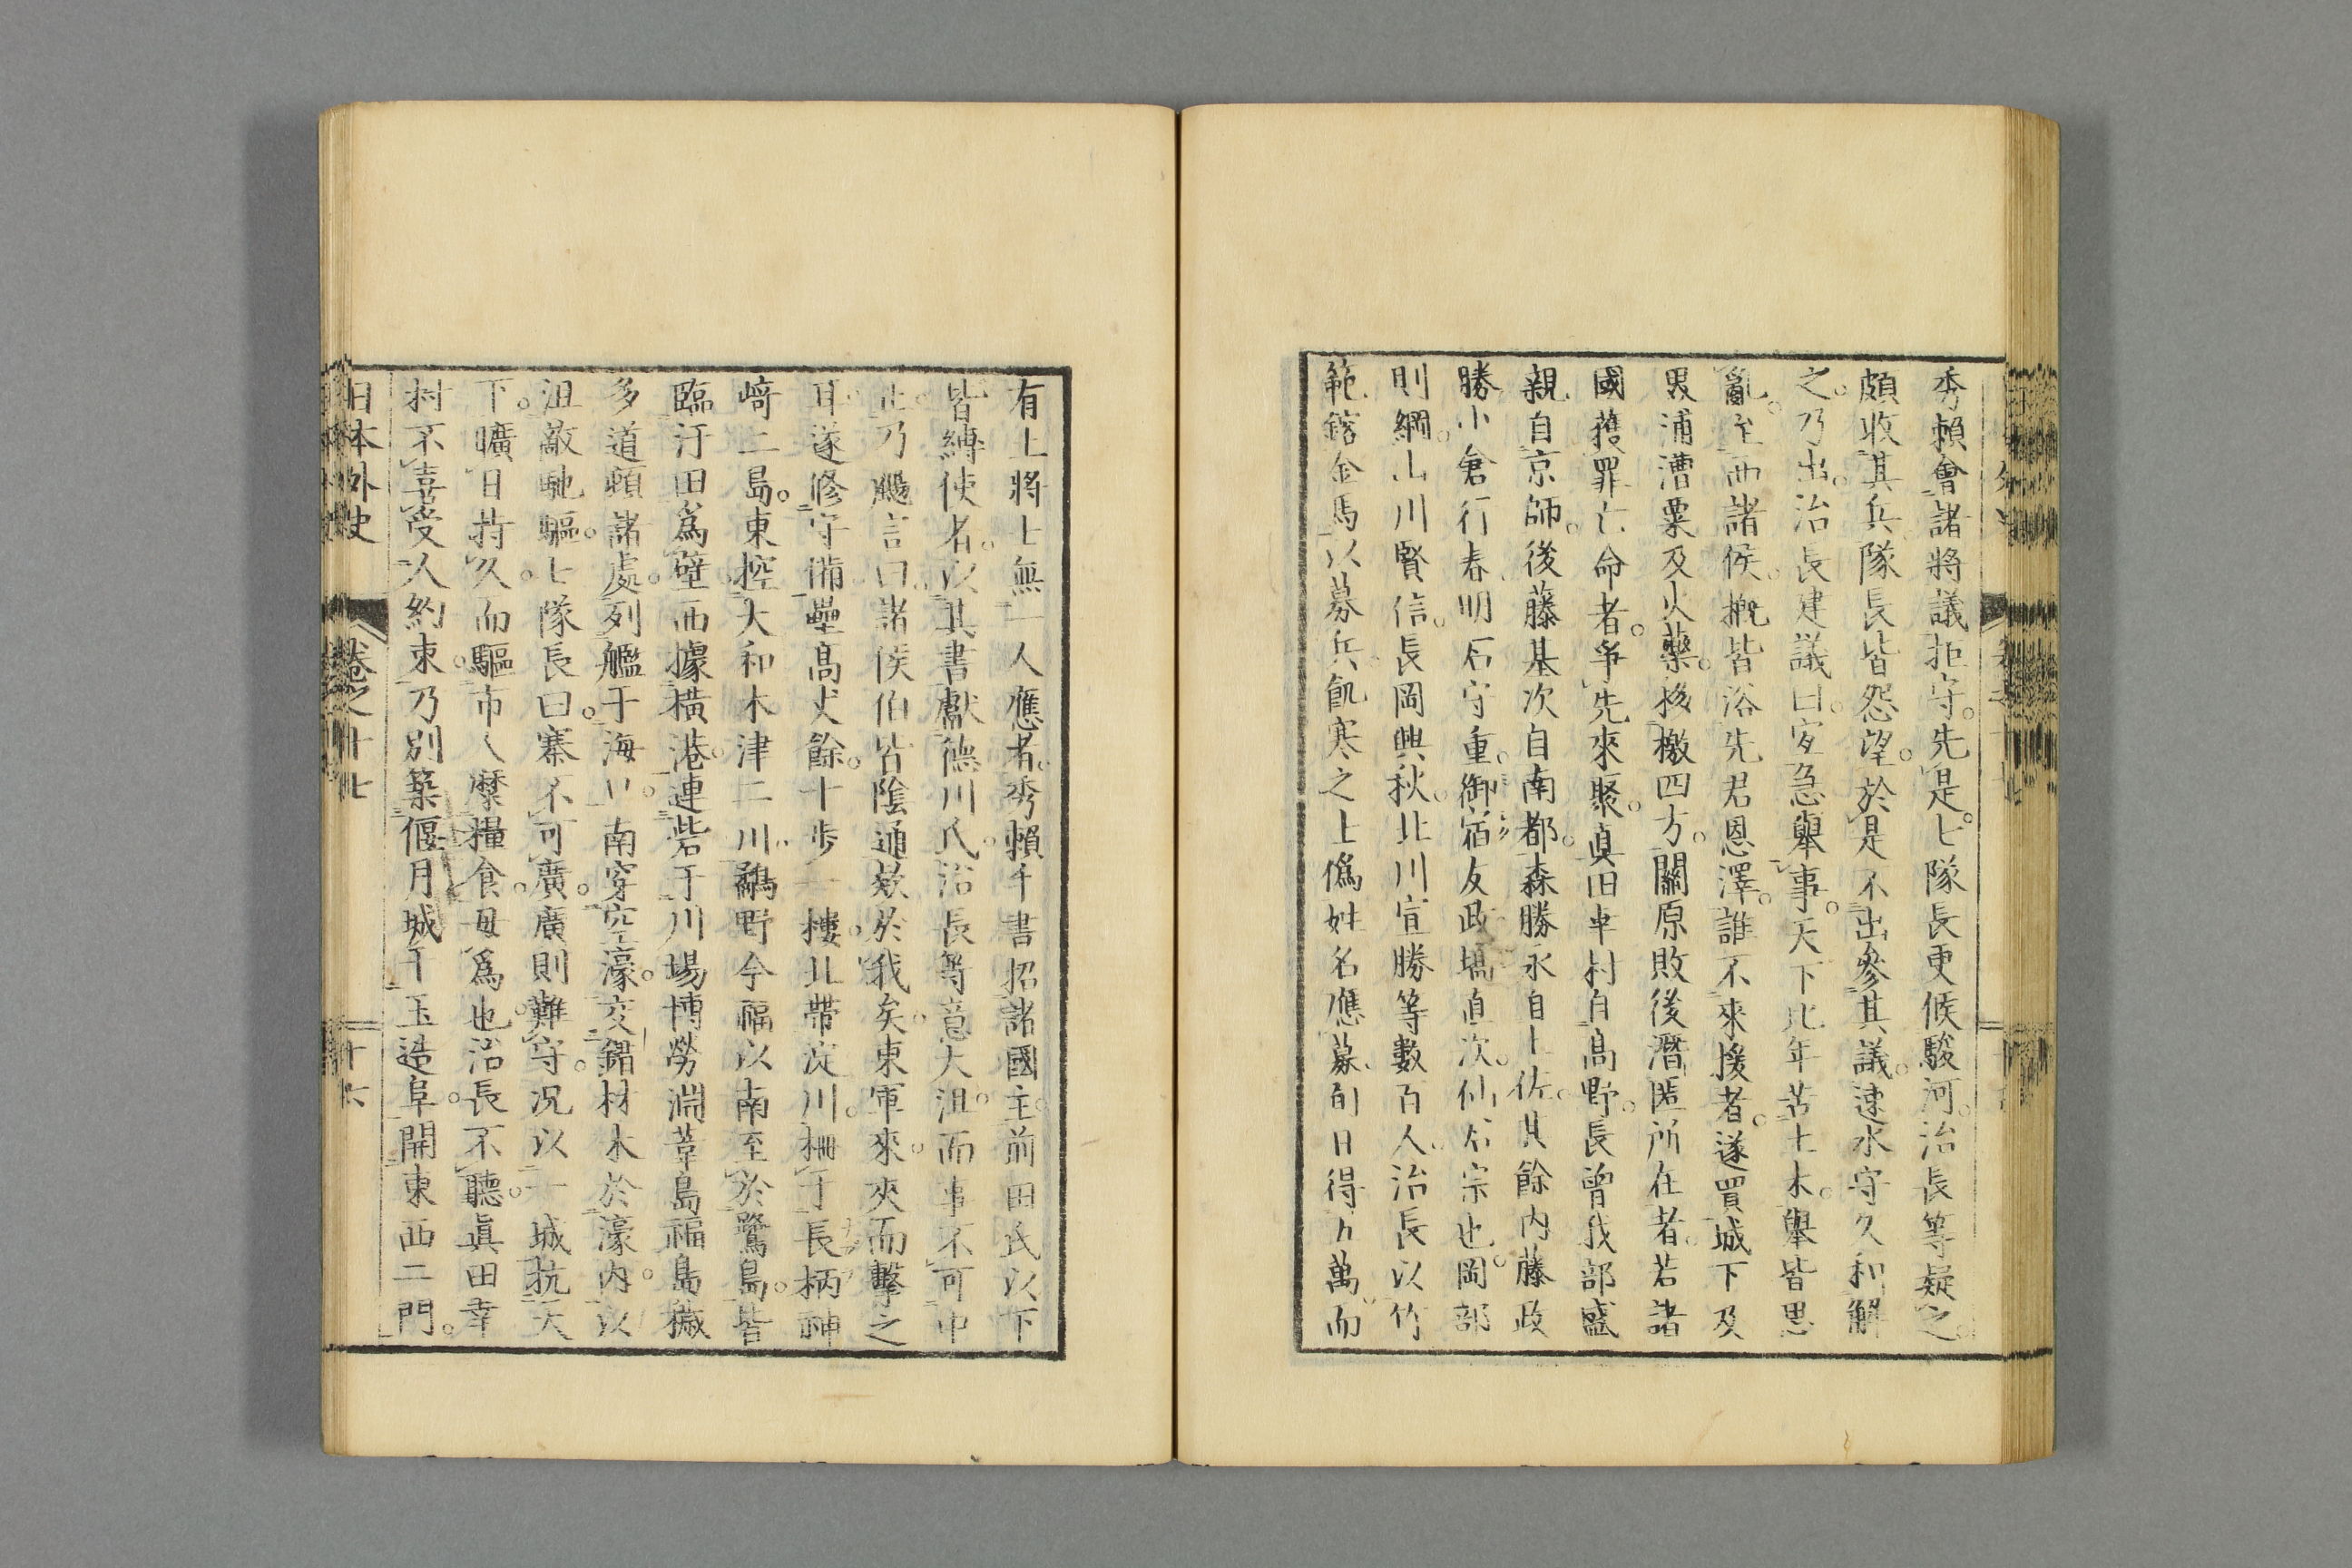 秀賴會諸將議拒守。先是。七隊長更候駿河。治長等疑之。
頗收其兵隊長皆怨望。於是不出參其議。速水守久和解
之。乃出。治長建議曰。宜急舉事。天下比年苦土木。舉皆思
亂。至西諸侯。概皆浴先君恩澤。誰不來援者。遂買城下及
畏浦漕粟及火藥。移檄四方。關原敗後潛匿所在者。若諸
國獲罪亡命者。爭先來聚。眞田幸村自高野。長曾我部盛
親自京師。後藤基次自南都。森勝永自土佐。其餘內藤政
勝小倉行春明石守重。御宿友政塙直次。仙石宗也。岡部
則綱。山川賢信。長岡興秋。北川宣勝等數百人。治長以竹
範鎔金馬以募兵。飢寒之士僞姓名應募。旬日得六萬。而
有上將士無一人應者。秀賴手書招諸國主。前田氏以下
皆縛使者。以其書獻德川氏。治長等意大沮。而事不可中
止。乃颺言曰。諸侯伯皆陰通款於我矣。東軍來。夾而擊之
耳。遂修守備壘高丈餘。十步一樓。北帶淀川。柵于長柄神
崎二島。東控大和木津二川。鷸野今福以南至於鷺島。皆
臨汙田爲壁西據橫港。連砦于川場博勞淵葦島福島薇
多道頓諸處。列艦于海川。南穿空濠。交錯材木於濠內。以
沮敵馳驅。七隊長曰。寨不可廣。廣則難守。况以一城抗天
下。曠日持久。而驅市人糜糧食。毋爲也。治長不聽。眞田幸
村不喜受人約束。乃別築偃月城于玉造阜。開東西二門。
日本外史 卷之十七 十六